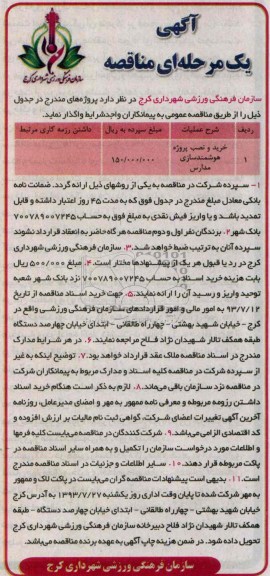 آگهی
یک مرحله‌ای مناقصه
سازمان فرهنگی ورزشی شهرداری کرج
سازمان فرهنگی ورزشی شهرداری کرج در نظر دارد پروژه‌های مندرج در جدول
ذیل را از طریق مناقصه عمومی به پیمانکاران واجدشرایط واگذار نماید.
ردیف شرح عملیات مبلغ سپرده به ریال داشتن رزمه کاری مرتبط
۱ خرید و نصب پروژه هوشمندسازی مدارس ۱۵۰/۰۰۰/۰۰۰
۱- سپرده شرکت در مناقصه به یکی از روشهای ذیل ارائه گردد. ضمانت نامه
بانکی معادل مبلغ مندرج در جدول فوق که به مدت ۴۵ روز اعتبار داشته و قابل
تمدید باشد و یا واریز فیش نقدی به مبلغ فوق به حساب ۷۰۰۷۸۹۰۰۷۲۴۵
بانک شهر ۲. برندگان نفر اول و دوم مناقصه هرگاه حاضر به انعقاد قرارداد نشوند
سپرده آنان به ترتیب ضبط خواهد شد. ۳. سازمان فرهنگی ورزشی شهرداری
کرج در رد یا قبول هر یک از پیشنهادها مختار است. ۴. مبلغ ۵۰۰/۰۰۰ ریال
بابت هزینه خرید اسناد به حساب ۷۰۰۷۸۹۰۰۷۲۴۵ نزد بانک شهر شعبه
توحید واریز و رسید آن را ارائه نمایند. ۵. جهت خرید اسناد مناقصه از تاریخ
۹۳/۷/۱۲ به امور مالی و امور قراردادهای سازمان فرهنگی ورزشی واقع در
کرج - خیابان شهید بهشتی - چهارراه طالقانی - ابتدای خیابان چهارصد دستگاه
طبقه همکف تالار شهیدان نژاد فلاح مراجعه نمایند. ۶. در هر شرایط مدارک
مندرج در اسناد مناقصه ملاک عقد قرارداد خواهد بود. ۷. توضیح اینکه به غیر
از سپرده شرکت در مناقصه کلیه اسناد و مدارک مربوط به پیمانکاران شرکت
در مناقصه نزد سازمان باقی می‌ماند. ۸. لازم به ذکر است هنگام خرید اسناد
داشتن رزومه مربوطه و معرفی نامه ممهور به مهر و امضای مدیرعامل، روزنامه
آخرین آگهی تغییرات امضای شرکت، گواهی ثبت نام مالیات بر ارزش افزوده و
کد اقتصادی الزامی می‌باشد. ۹. شرکت کنندگان در مناقصه می‌بایست کلیه فرمها
و اطلاعات مورد درخواست سازمان را تکمیل و به همراه سایر اسناد مناقصه در
پاکت مربوطه قرار دهند. ۱۰. سایر اطلاعات و جزئیات در اسناد مناقصه مندرج
است. ۱۱. بدیهی است پیشنهادات مناقصه گران می‌بایست در پاکت لاک و ممهور
به مهر شرکت شده تا پایان وقت اداری روز یکشنبه ۱۳۹۳/۷/۲۷ به آدرس کرج
خیابان شهید بهشتی - چهارراه طالقانی - ابتدای خیابان چهارصد دستگاه - طبقه
همکف تالار شهیدان نژاد فلاح دبیرخانه سازمان فرهنگی ورزشی شهرداری کرج
تحویل داده شود. در ضمن هزینه چاپ آگهی به عهده برنده مناقصه می‌باشد.
سازمان فرهنگی ورزشی شهرداری کرج